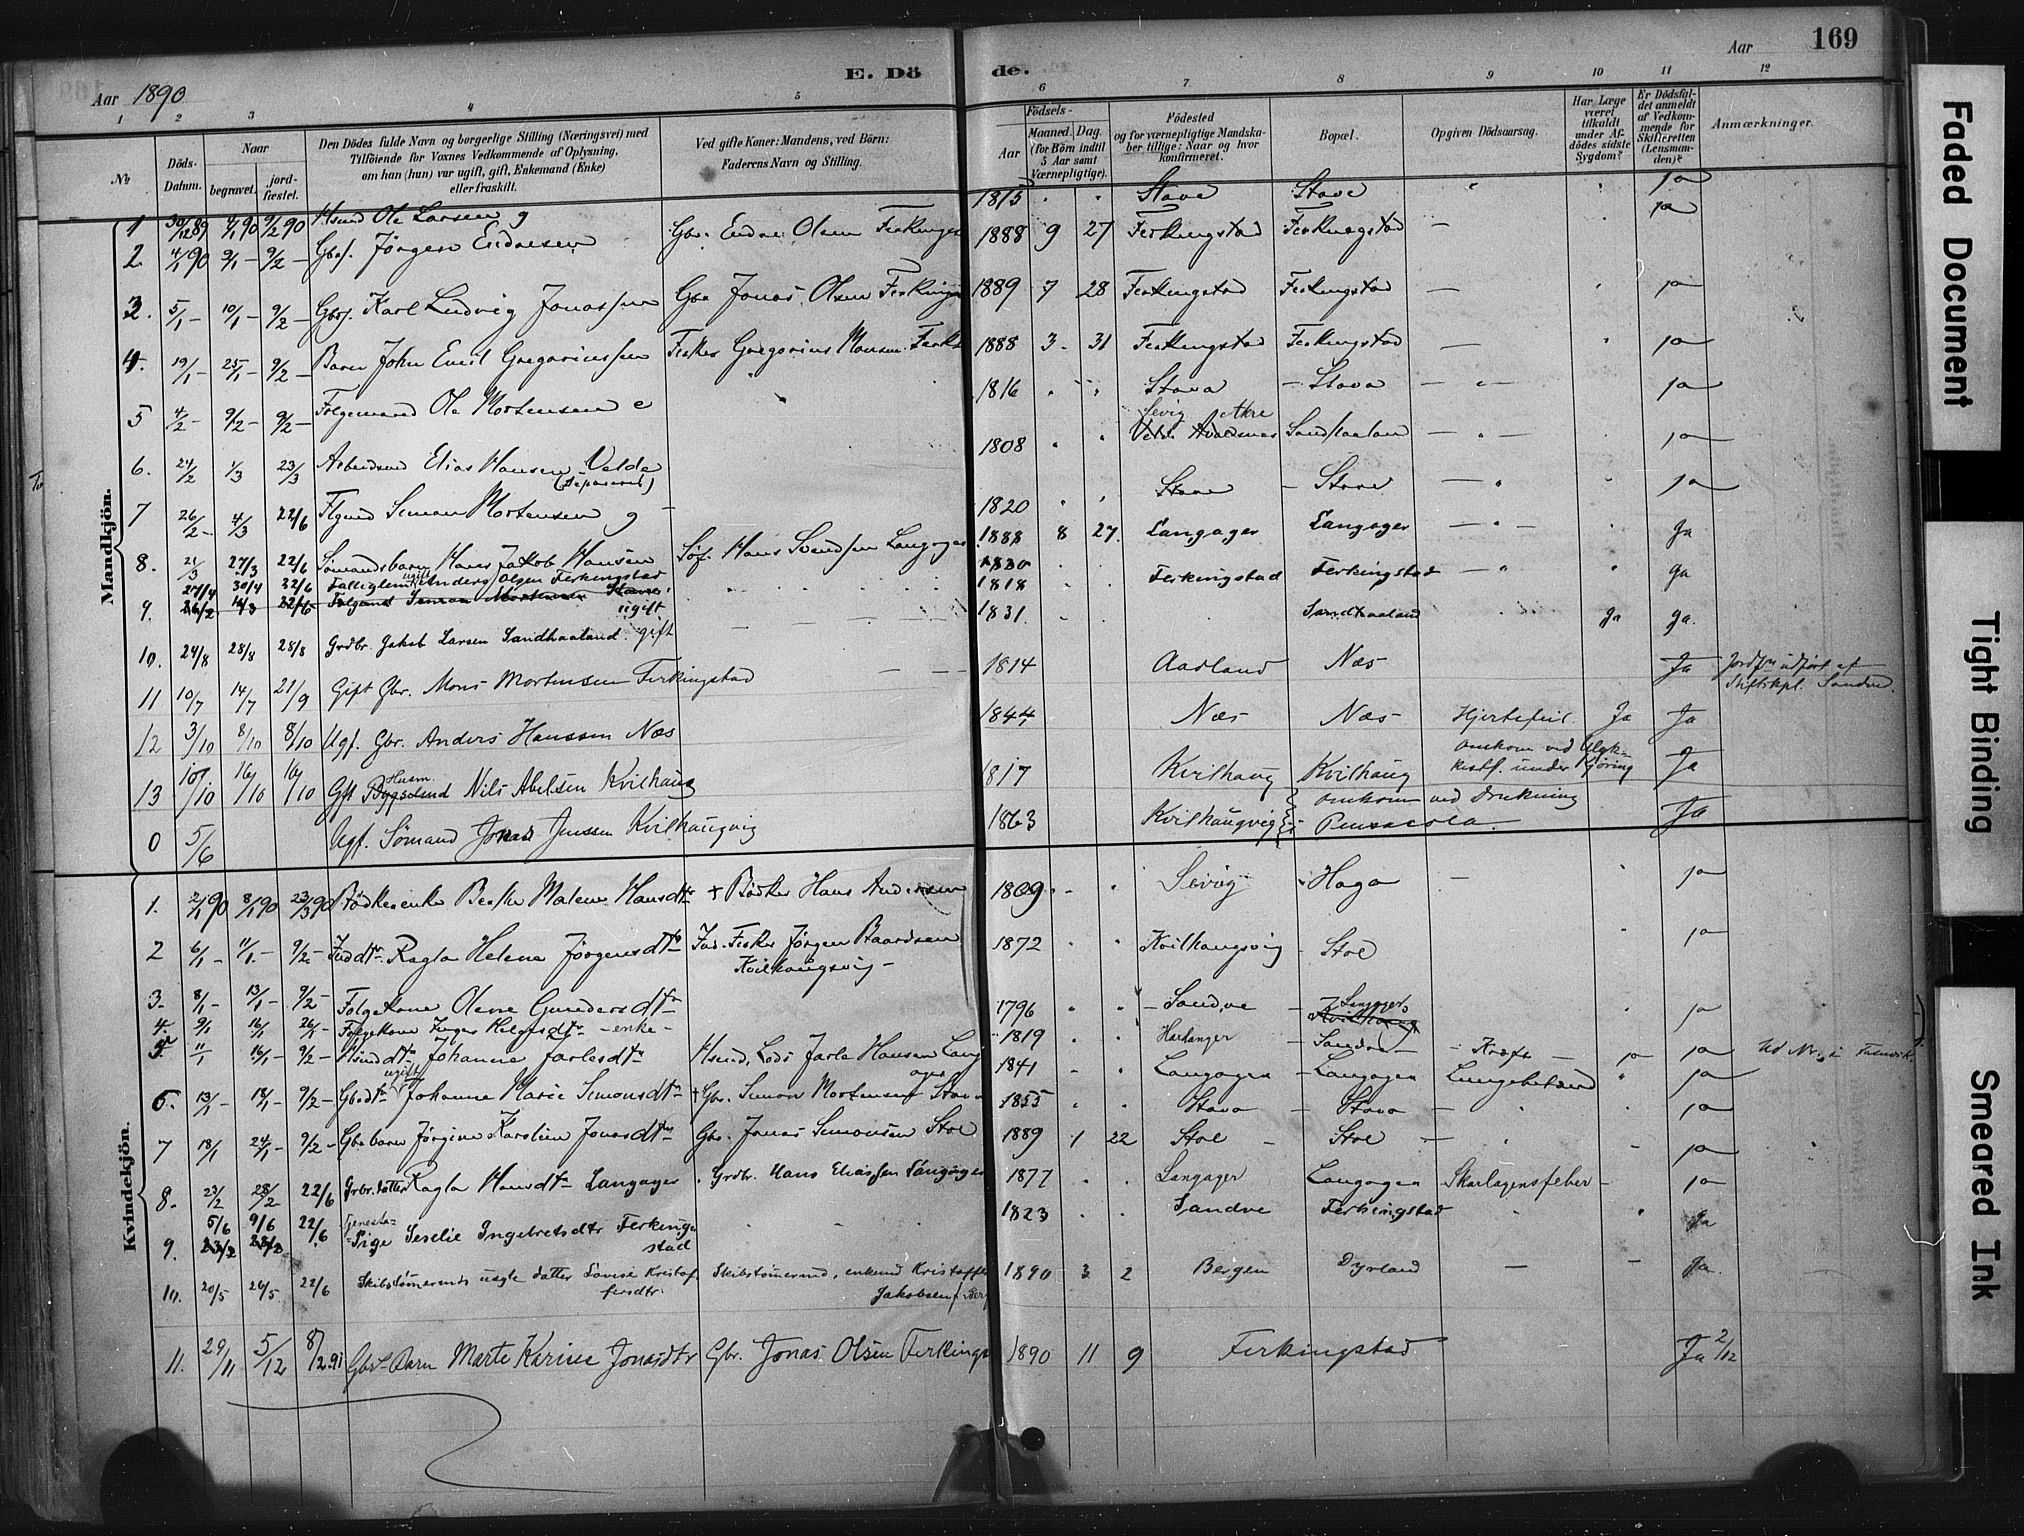 E. Döde.
Aar 1890
Aar 169
1 2 3 4 5 6 7 8 9 10 11 12
No
Döds-Datum.
Naar
begravet.
jord-fæstet.
Den Dödes fulde Navn og borgerlige Stilling (Næringsvei) med
Tilföiende for Voxnes Vedkommende af Oplysning,
om han (hun) var ugift, gift, Enkemand (Enke)
eller fraskilt.
Ved gifte Koner: Mandens, ved Börn:
Faderens Navn og Stilling.
Födsels-
Aar
Maaned. Dag.
(for Börn indtil
5 Aar samt
Værnepligtige).
Födested
og for værnepligtige Mandska-
ber tillige: Naar og hvor
konfirmeret.
Bopæl.
Opgiven Dödsaarsag.
Har Læge
været
tilkaldt
under Af-
dödes sidste
Sygdom?
Er Dödsfal-
det anmeldt
af Vedkom-
mende for
Skifteretten
(Lensman-
den)?
Anmærkninger.
Mandkjön.
1 30/12 89 9/2 90 Hmd Ole Larsen g 1815 Stave Stave ja
2. 4/1 90 9/1 – 9/2 – Gbrs. Jörgen Endresen Gbr. Endre Olsen 1888 9 27 Ferkingstad Ferkingstad – ja
3. 5/1 – 10/1 – 9/2 – Gbrs. Karl Ludvig Jonassen Gbr Jonas Olsen 1889 7 28 Ferkingstad Ferkingstad – ja
4. 19/1 – 25/1 – 9/2 – Barn John Emil Gregoriussen Fisker Gregorius Hansen 1888 3 31 Ferkingstad Ferkingstad – ja
5 4/2 – 9/2 – 9/2 – Folgemand Ole Mortensen e 1816 Stava – Stava – ja
6. 24/2 1/3 23/3 Elias Hansen Velde 1808 Sevig Akre Avaldsnes Sandhaaland ja
7 26/2 – 4/3 22/6 Simon Mortensen g 1820 Stave – Stave ja
8. 21/3 27/3 22/6 Sömandsbarn Hans Jakob Hansen Hans Svendsen Langager 1888 8 27. Langager Langager Ja
9. 27/4 30/4 22/6 ugift Anders Olsen Ferkingstad 1818 Ferkingstad Ferkingstad ga
10. 24/8 28/8 28/8 Grdbr. Jakob Larsen Sandhaaland. gift 1831. Sandhaaland Ja Ja.
11 10/7 14/7 21/9 Gift Gbr. Mons Mortensen Ferkingstad 1814 Aadland Næs Ja Jordf. udfört af Stiftskpl. Sandved.
12 3/10 8/10 8/10 Ugf. Gbr. Anders Hanssen Næs 1844 Næs Næs Hjertefeil. Ja Ja
13 10/10 16/10 16/10 Gft Husm. Nils Abelsen Kvilhaug 1817 Kvilhaug Kvilhaug omkom ved under Ja
0 5/6 Ugf. Sömand Jonas Jenssen Kvilhaugvig 1863 Kvilhaugvig omkom ved Drukning i Pensacola. Ja
Kvindekjön.
1. 2/1 90 8/1 90 23/3 90 Bödkerenke Malene Hansdtr + Bödker Hans Andersen 1809 Sevig Haga – ja
2 6/1 – 11/1 – 9/2 – Inddtr. Ragla Helene Jörgensdtr Ind. Fisker Jörgen Baardsen Kvilhaugsvig – 1872 Kvilhaugsvig – Stol ja
3. 8/1 – 13/1 – 9/2 – Folgekone Olene Gundersdtr 1796 – Sandve – Langager ja
4. 9/1 16/1 26/1 – Folgekone Inger Helgesdtr – enke – 1819 Hardanger – Sandve – – Kræft – ja ja
5. 11/1 16/1 – 9/2 – Hmddtr Johanne Jarlesdtr Hmd, Lods Jarle Hansen Langager 1841 Langagen – Langagen Lungebetænd ja
6. 13/1 – 18/1 – 9/2 – Gbrdtr ugift Johanne Marie Simonsdtr + Gbr. Simon Mortensen Stava 1855 Stava – Stava – ja
7 18/1 24/1 – 9/2 – Gbrbarn Jörgine Karoline Jonasdtr Gbr. Jonas Simonsen Stol 1889 1 22 Stol – Stol – ja
8. 23/2 28/2 22/6 Grbr. datter Ragla Hansdtr Langager Grdbr. Hans Eliassen Langager 1877 Langager Langagen Skarlagensfeber – ja
9. 5/6 9/6 22/6 Tjeneste-Pige Seselie Ingebretsdtr Ferkingstad 1823 Sandve Ferkingstad Ja
10. 20/5 26/5 22/6 Skibstömrmds uægte datter Lovise Kristoffersdtr. Skibstömrmd, enkemd Kristoffer Jakobsen, 1890 3 2 Bergen Dyrland – – Ja.
11. 29/11 5/12 8/2 91 Gbrs Barn Marte Karine Jonasdtr Gbr. Jonas Olsen 1890 11 9 Ferkingstad Ja 2/12
Faded Document
Tight Binding
Smeared Ink